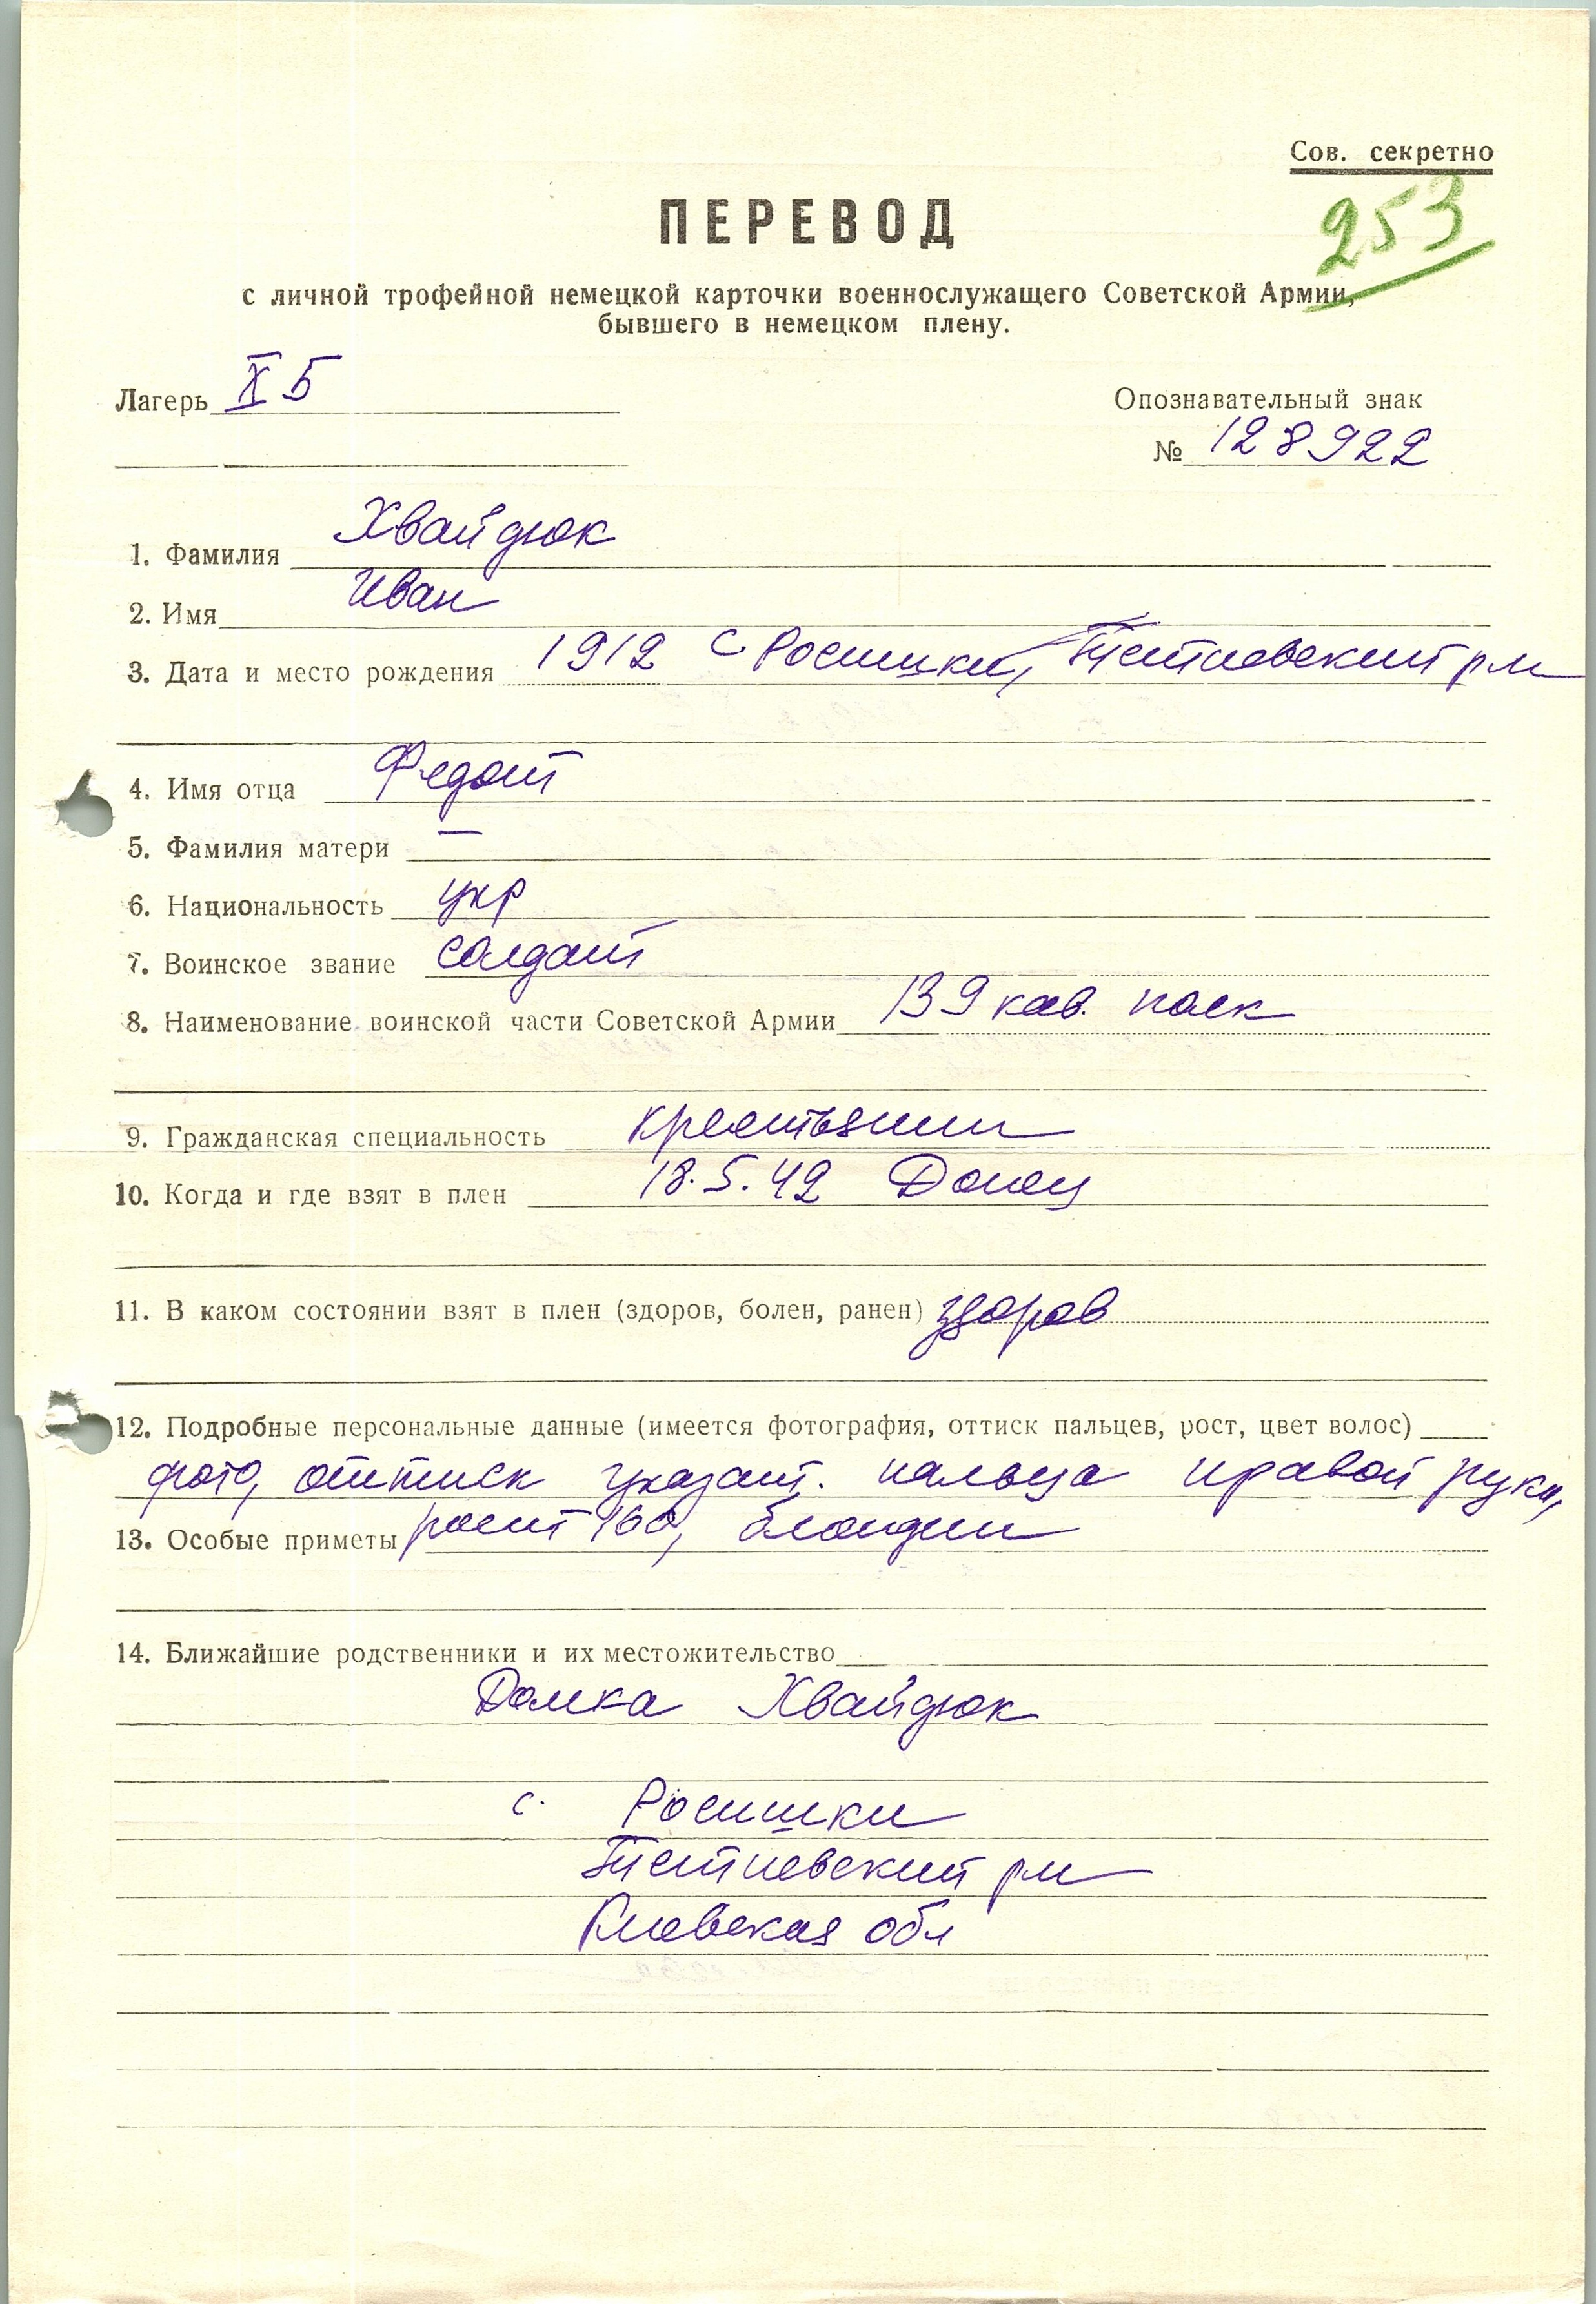 Сов. секретно
253
ПЕРЕВОД
с личной трофейной немецкой карточки военнослужащего Советской Армии,
бывшего в немецком плену.
Лагерь X Б
Опознавательный знак
№ 128922
1. Фамилия Хвайдюк
2. Имя Иван
3. Дата и место рождения 1912 с Росишки, Тетиевский р-н
4. Имя отца Федот
5. Фамилия матери —
6. Национальность укр
7. Воинское звание солдат
8. Наименование воинской части Советской Армии 139 кав. полк
9. Гражданская специальность крестьянин
10. Когда и где взят в плен 18.5.42 Донец
11. В каком состоянии взят в плен (здоров, болен, ранен) здоров
12. Подробные персональные данные (имеется фотография, оттиск пальцев, рост, цвет волос)
фото, оттиск указат. пальца правой руки,
13. Особые приметы рост 160, блондин
14. Ближайшие родственники и их местожительство
Домка Хвайдюк
с. Росишки
Тетиевский р-н
Киевская обл